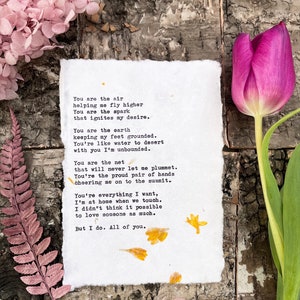 You are the air
helping me fly higher
You are the spark
that ignites my desire.

You are the earth
keeping my feet grounded.
You're like water to desert
with you I'm unbounded.

You are the net
that will never let me plummet.
You're the proud pair of hands
cheering me on to the summit.

You're everything I want,
I'm at home when we touch.
I didn't think it possible
to love someone as much.

But I do. All of you.